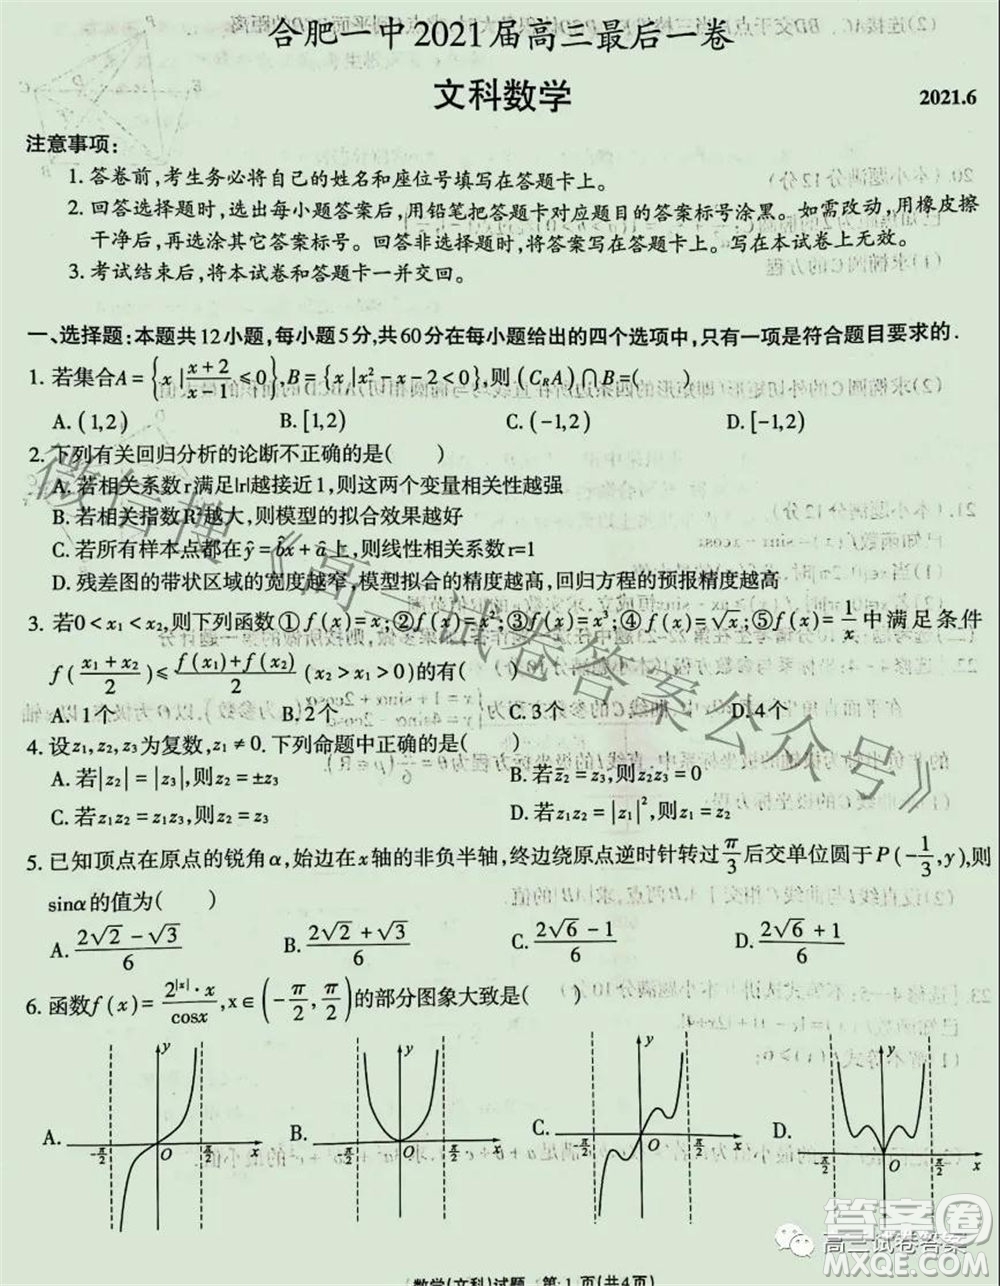 合肥一中2021届高三最后一卷
文科数学
2021.6
注意事项：
1. 答卷前，考生务必将自己的姓名和座位号填写在答题卡上。
2. 回答选择题时，选出每小题答案后，用铅笔把答题卡对应题目的答案标号涂黑。如需改动，用橡皮擦
干净后，再选涂其它答案标号。回答非选择题时，将答案写在答题卡上。写在本试卷上无效。
3. 考试结束后，将本试卷和答题卡一并交回。
一、选择题：本题共12小题，每小题5分，共60分在每小题给出的四个选项中，只有一项是符合题目要求的．
1. 若集合A={x|(x+2)/(x-1)≤0},B={x|x²-x-2<0},则(C_R A)∩B=(　　)
A. (1,2)　B. [1,2)　C. (-1,2)　D. [-1,2)
2. 下列有关回归分析的论断不正确的是(　　)
A. 若相关系数r满足|r|越接近1,则这两个变量相关性越强
B. 若相关指数R²越大,则模型的拟合效果越好
C. 若所有样本点都在ŷ=b̂x+â上,则线性相关系数r=1
D. 残差图的带状区域的宽度越窄,模型拟合的精度越高,回归方程的预报精度越高
3. 若0<x₁<x₂,则下列函数①f(x)=x;②f(x)=x²;③f(x)=x³;④f(x)=√x;⑤f(x)=1/x 中满足条件
f((x₁+x₂)/2)≤(f(x₁)+f(x₂))/2 (x₂>x₁>0)的有(　　)
A. 1个　B. 2个　C. 3个　D. 4个
4. 设z₁,z₂,z₃为复数,z₁≠0. 下列命题中正确的是(　　)
A. 若|z₂|=|z₃|,则z₂=±z₃　B. 若z̄₂=z₃,则z₂z₃=0
C. 若z₁z₂=z₁z₃,则z₂=z₃　D. 若z₁z₂=|z₁|²,则z₁=z₂
5. 已知顶点在原点的锐角α,始边在x轴的非负半轴,终边绕原点逆时针转过π/3后交单位圆于P(-1/3,y),则
sinα的值为(　　)
A. (2√2-√3)/6　B. (2√2+√3)/6　C. (2√6-1)/6　D. (2√6+1)/6
6. 函数f(x)=(2^|x|·x)/cosx,x∈(-π/2,π/2)的部分图象大致是(　　)
A. y -π/2 O π/2 x　B. y -π/2 O π/2 x　C. y -π/2 O π/2 x　D. y -π/2 O π/2 x
数学(文科)试题　第1页(共4页)
微信搜《高三试卷答案公众号》
高三试卷答案
答案圈
MXQE.COM